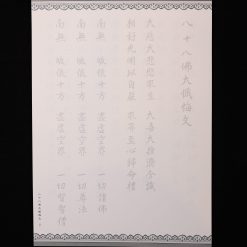 八十八佛大懺悔文
大慈大悲愍眾生　大喜大捨濟含識
相好光明以自嚴　眾等至心歸命禮
南無　皈依十方　盡虛空界　一切諸佛
南無　皈依十方　盡虛空界　一切尊法
南無　皈依十方　盡虛空界　一切賢聖僧